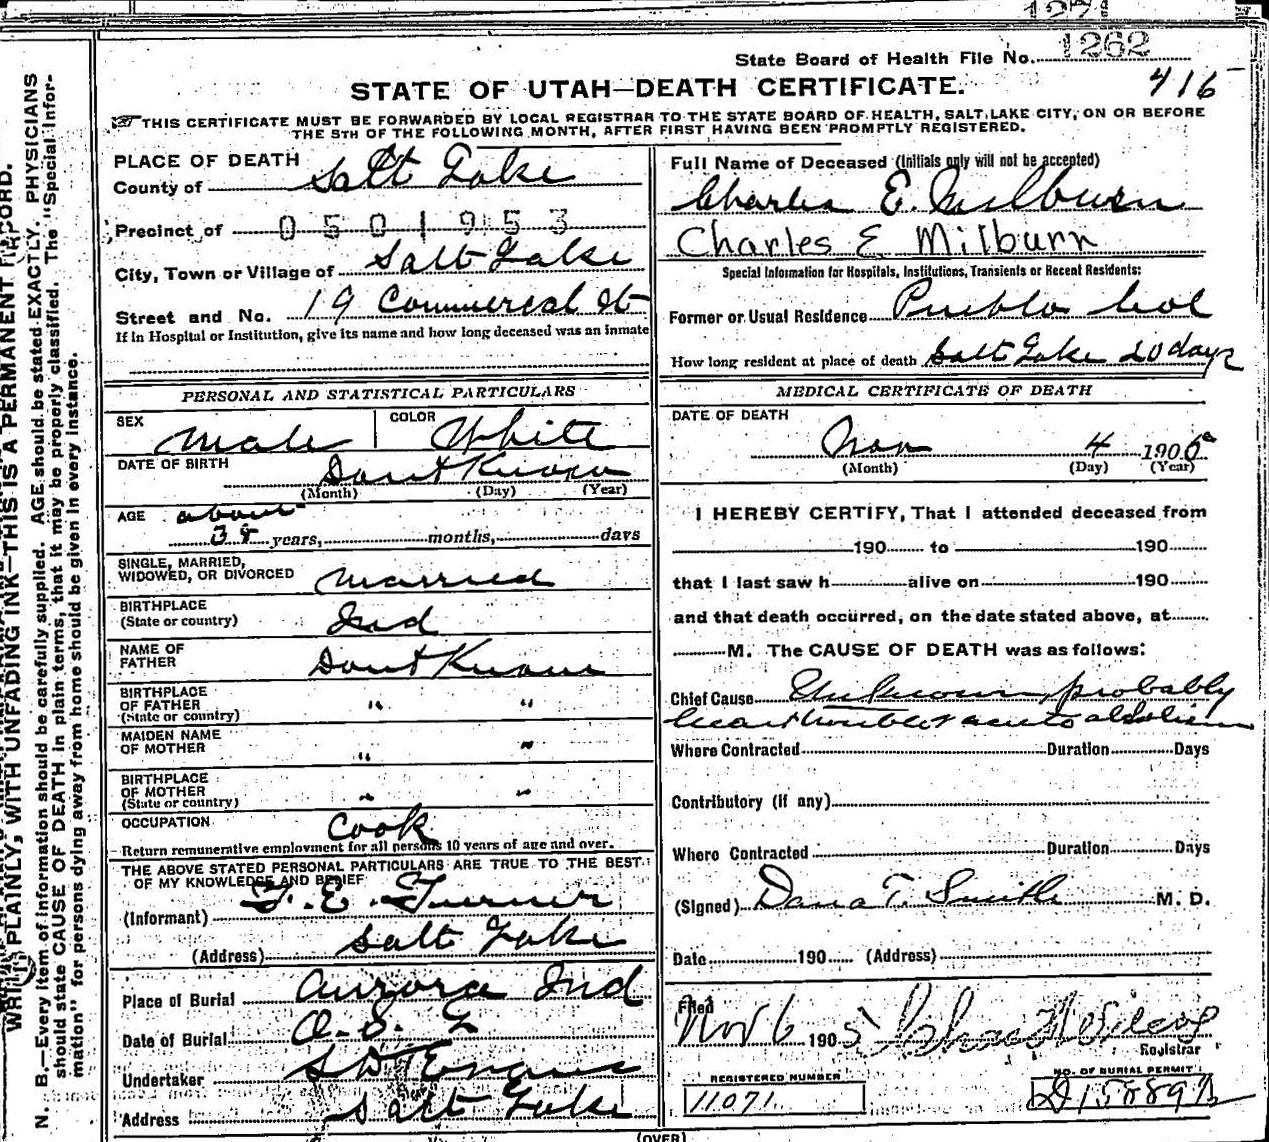 1271
State Board of Health File No. 1262
416
STATE OF UTAH—DEATH CERTIFICATE.
THIS CERTIFICATE MUST BE FORWARDED BY LOCAL REGISTRAR TO THE STATE BOARD OF HEALTH, SALT LAKE CITY, ON OR BEFORE
THE 5TH OF THE FOLLOWING MONTH, AFTER FIRST HAVING BEEN PROMPTLY REGISTERED.
WRITE PLAINLY, WITH UNFADING INK—THIS IS A PERMANENT RECORD.
N. B.—Every item of information should be carefully supplied. AGE should be stated EXACTLY. PHYSICIANS
should state CAUSE OF DEATH in plain terms, that it may be properly classified. The "Special Infor-
mation" for persons dying away from home should be given in every instance.
PLACE OF DEATH
County of Salt Lake
Precinct of 0501953
City, Town or Village of Salt Lake
Street and No. 19 Commercal St
If in Hospital or Institution, give its name and how long deceased was an inmate
PERSONAL AND STATISTICAL PARTICULARS
SEX Male COLOR White
DATE OF BIRTH Dont Know
(Month) (Day) (Year)
AGE about
38 years, months, days
SINGLE, MARRIED,
WIDOWED, OR DIVORCED Married
BIRTHPLACE
(State or country) Ind
NAME OF
FATHER Dont Know
BIRTHPLACE
OF FATHER " "
(State or country)
MAIDEN NAME
OF MOTHER " "
BIRTHPLACE
OF MOTHER " "
(State or country)
OCCUPATION Cook
Return remunerative employment for all persons 10 years of age and over.
THE ABOVE STATED PERSONAL PARTICULARS ARE TRUE TO THE BEST
OF MY KNOWLEDGE AND BELIEF
(Informant) F. E. Turner
(Address) Salt Lake
Place of Burial Aurora Ind
Date of Burial
Undertaker S D Evans
Address Salt Lake
(OVER)
Full Name of Deceased (Initials only will not be accepted)
Charles E. Milburn
Charles E Milburn
Special Information for Hospitals, Institutions, Transients or Recent Residents:
Former or Usual Residence Pueblo Col
How long resident at place of death Salt Lake 20 days
MEDICAL CERTIFICATE OF DEATH
DATE OF DEATH
Nov 4 1905
(Month) (Day) (Year)
I HEREBY CERTIFY, That I attended deceased from
190 to 190
that I last saw h alive on 190
and that death occurred, on the date stated above, at
M. The CAUSE OF DEATH was as follows:
Chief Cause Unknown, probably
heart trouble & acute alcoholism
Where Contracted Duration Days
Contributory (if any)
Where Contracted Duration Days
(Signed) Dana T. Smith M. D.
Date 190 (Address)
Filed
Nov 6 1905 Chas H Wilcox
Registrar
REGISTERED NUMBER NO. OF BURIAL PERMIT
11071 D 15889